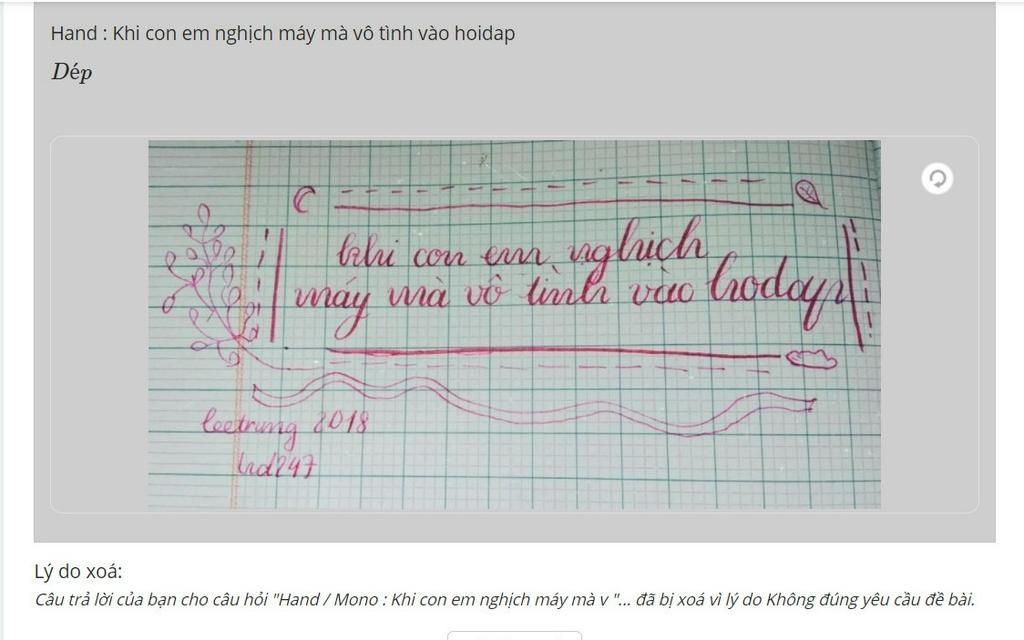 Hand : Khi con em nghịch máy mà vô tình vào hoidap
Dép
khi con em nghịch
máy mà vô tình vào hodap
leetrung 2018
hd247
Lý do xoá:
Câu trả lời của bạn cho câu hỏi "Hand / Mono : Khi con em nghịch máy mà v "... đã bị xoá vì lý do Không đúng yêu cầu đề bài.